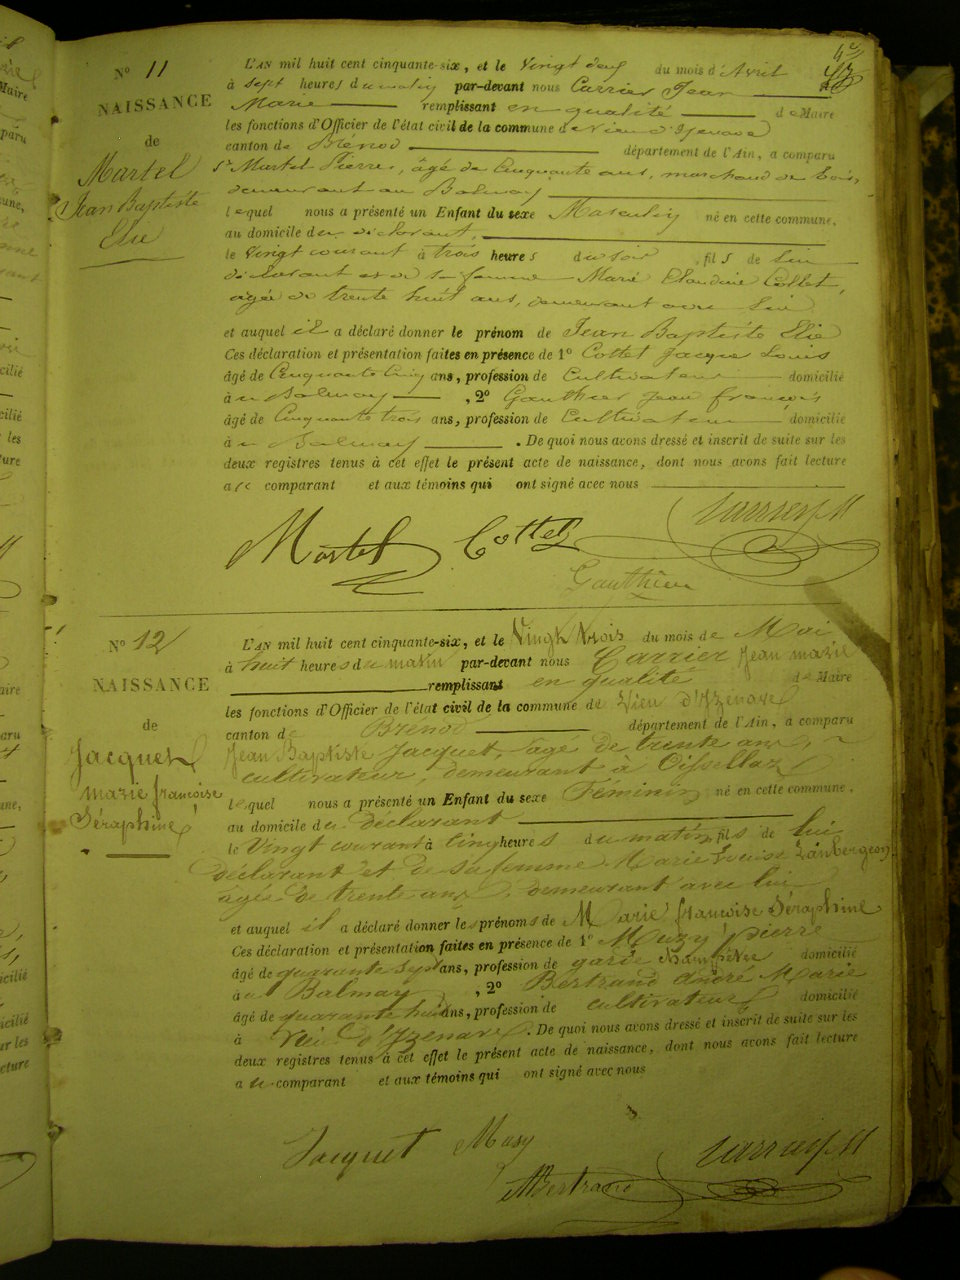 N° 11
NAISSANCE
de
Martel
Jean Baptiste
Elie
L'AN mil huit cent cinquante-six, et le Vingt deux du mois d'Avril
à sept heures du matin par-devant nous Carrier Jean
Marie remplissant en qualité de Maire
les fonctions d'Officier de l'état civil de la commune de Vieu d'Izenave
canton de Brénod département de l'Ain, a comparu
Sr Martel Pierre, âgé de Cinquante ans, marchand de bois,
demeurant au Balmay
lequel nous a présenté un Enfant du sexe Masculin né en cette commune,
au domicile du déclarant,
le Vingt courant à trois heures du soir fils de lui
déclarant et de sa femme Marie Claudine Collet,
agée de trente huit ans, demeurant avec lui
et auquel il a déclaré donner le prénom de Jean Baptiste Elie
Ces déclaration et présentation faites en présence de 1° Cottet Jacque Louis
âgé de Cinquante Cinq ans, profession de Cultivateur domicilié
à Balmay , 2° Gauthier Jean françois
âgé de Cinquante trois ans, profession de Cultivateur domicilié
à Balmay . De quoi nous avons dressé et inscrit de suite sur les
deux registres tenus à cet effet le présent acte de naissance, dont nous avons fait lecture
au comparant et aux témoins qui ont signé avec nous
Martel Cottet Carrier JM
Gauthier
N° 12
NAISSANCE
de
Jacquet
marie françoise
Séraphine
L'AN mil huit cent cinquante-six, et le Vingt trois du mois de Mai
à huit heures du matin par-devant nous Carrier Jean marie
remplissant en qualité de Maire
les fonctions d'Officier de l'état civil de la commune de Vieu d'Yzenave
canton de Brénod département de l'Ain, a comparu
Jean Baptiste Jacquet, âgé de trente ans,
cultivateur, demeurant à Oissellaz
lequel nous a présenté un Enfant du sexe Féminin né en cette commune,
au domicile du déclarant
le Vingt courant à Cinq heures du matin, fils de lui
déclarant et de sa femme Marie Louise
agée de trente ans, demeurant avec lui
et auquel il a déclaré donner les prénoms de Marie françoise Séraphine
Ces déclaration et présentation faites en présence de 1° Muzy pierre
âgé de quarante sept ans, profession de garde champêtre domicilié
au Balmay , 2° Bertrand André Marie
âgé de quarante huit ans, profession de cultivateur domicilié
à Vieu d'Yzenave . De quoi nous avons dressé et inscrit de suite sur les
deux registres tenus à cet effet le présent acte de naissance, dont nous avons fait lecture
au comparant et aux témoins qui ont signé avec nous
Jacquet Musy Carrier JM
ABertrand